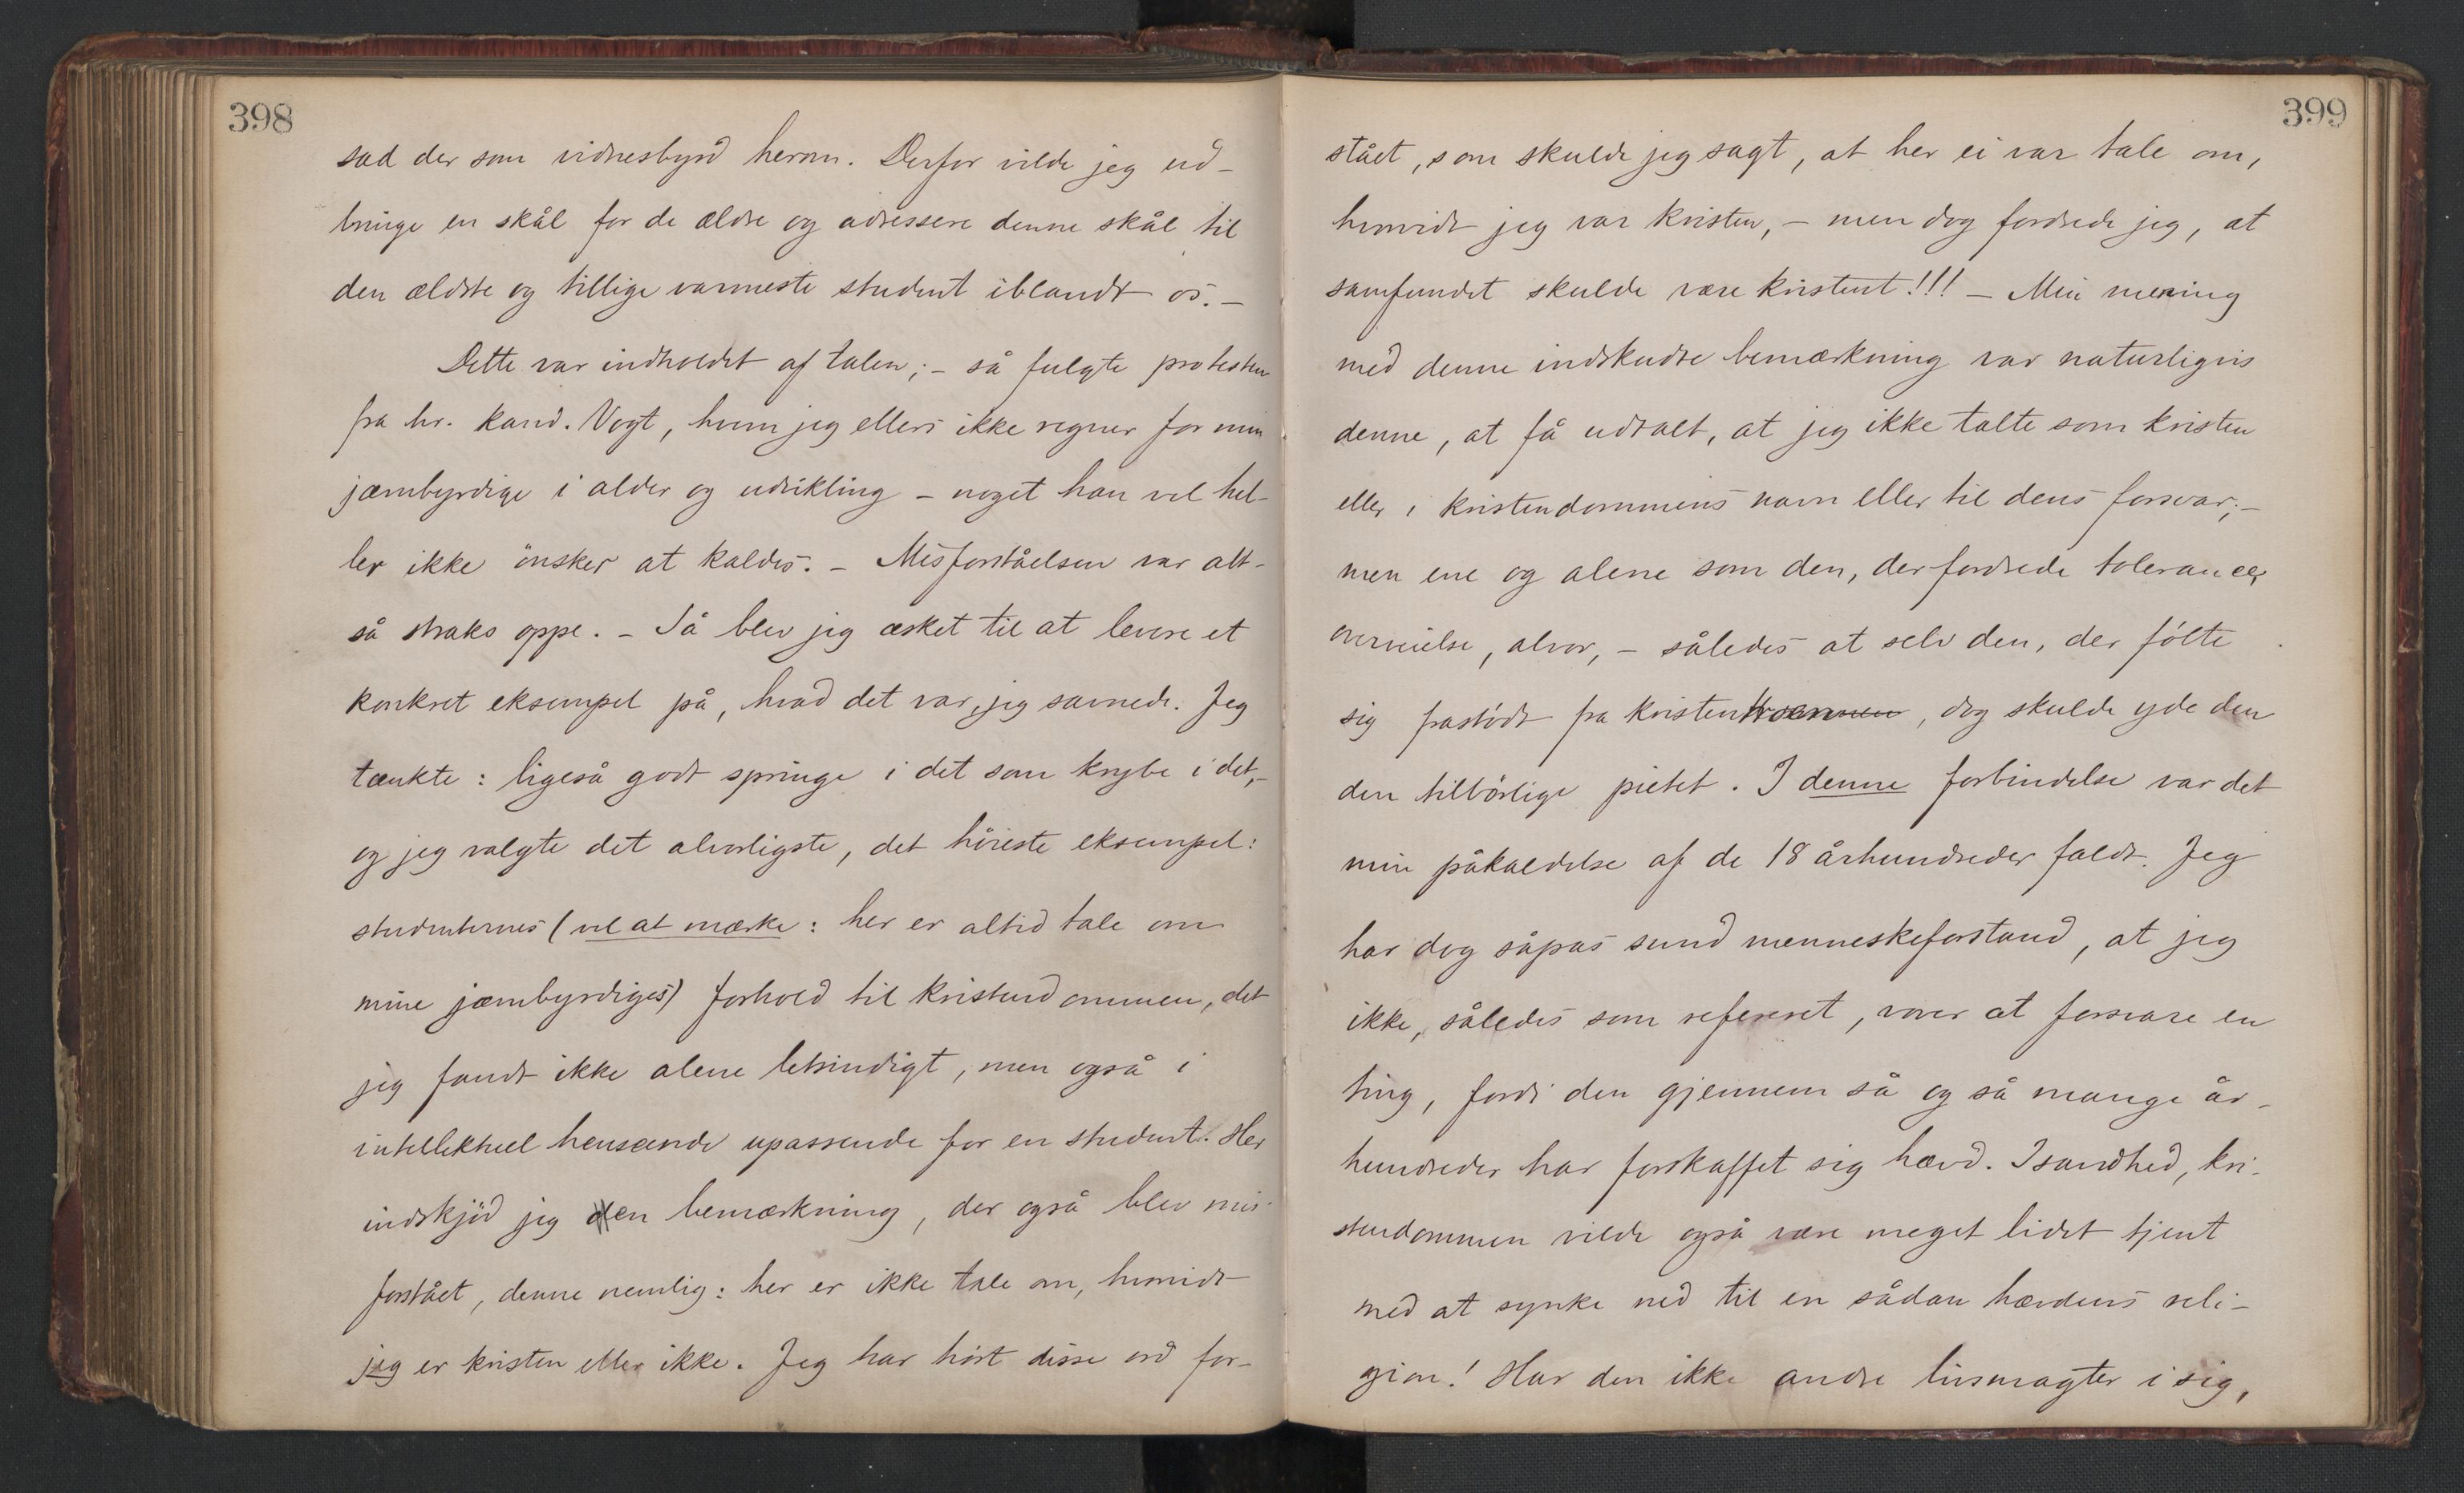 398
sad der som vidnesbyrd herom. Derfor vilde jeg ud-
bringe en skål for de ældre og adressere denne skål til
den ældste og tillige varmeste student iblandt os. –
Dette var indholdet af talen; – så fulgte protesten
fra hr. kand. Vogt, hvem jeg ellers ikke regner for min
jævnbyrdige i alder og udvikling – noget han vel hel-
ler ikke ønsker at kaldes. – Misforståelsen var alt-
så straks oppe. – Så blev jeg æsket til at levere et
konkret eksempel på, hvad det var, jeg savnede. Jeg
tænkte: ligeså godt springe i det som krybe i det, –
og jeg valgte det alvorligste, det høieste eksempel:
studenternes (vel at mærke: her er altid tale om
mine jævnbyrdiges) forhold til kristendommen, det
jeg fandt ikke alene letsindigt, men også i
intellektuel henseende upassende for en student. Her
indskjød jeg en bemærkning, der også blev mis-
forstået, denne nemlig: her er ikke tale om, hvorvidt
jeg er kristen eller ikke. Jeg har hørt disse ord for-
399
stået, som skulde jeg sagt, at her ei var tale om,
hvorvidt jeg var kristen, – men dog fordrede jeg, at
samfundet skulde være kristent!!! – Min mening
med denne indskudte bemærkning var naturligvis
denne, at få udtalt, at jeg ikke talte som kristen
eller i kristendommens navn eller til dens forsvar; –
men ene og alene som den, der fordrede tolerance,
overveielse, alvor, – således at selv den, der følte
sig frastødt fra kristentroen, dog skulde yde den
den tilbørlige pietet. I denne forbindelse var det
min påkaldelse af de 18 århundreder faldt. Jeg
har dog såpas sund menneskeforstand, at jeg
ikke, således som refereret, vover at forsvare en
ting, fordi den gjennem så og så mange år-
hundreder har forskaffet sig hævd. Isandhed, kri-
stendommen vilde også være meget lidet tjent
med at synke ned til en sådan hævdens reli-
gion! Har den ikke andre livsmagter i sig,